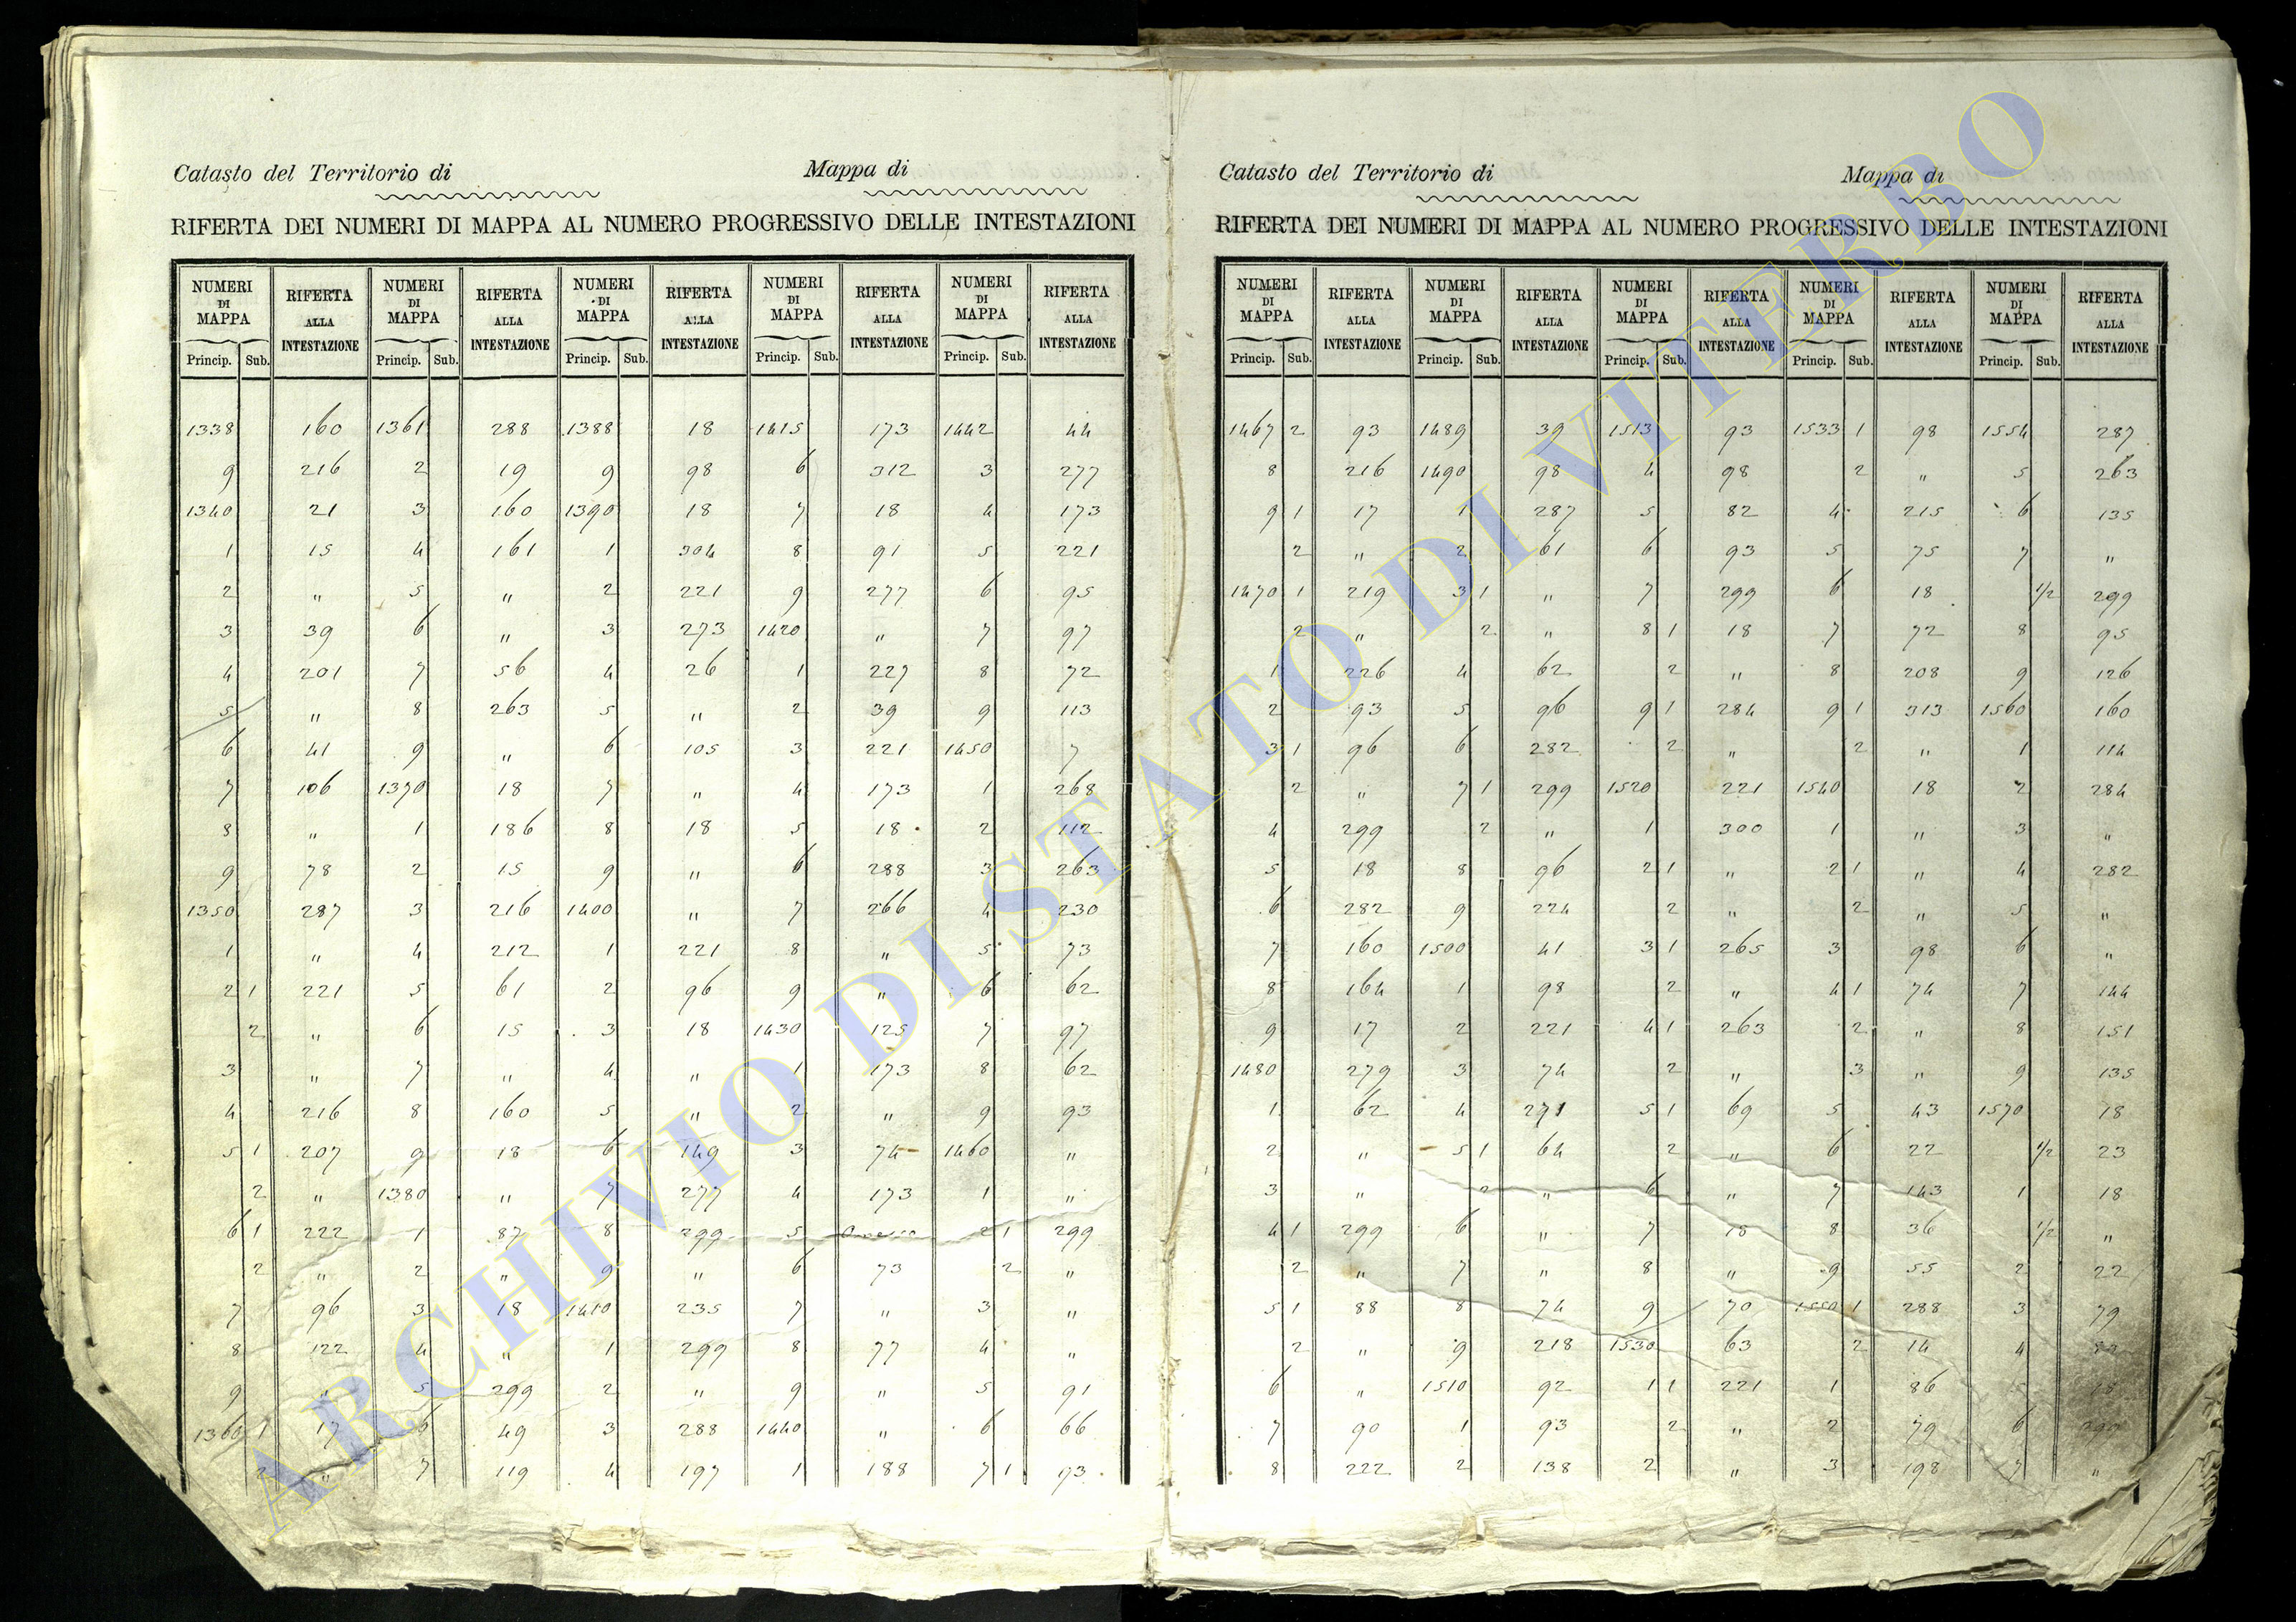 Catasto del Territorio di Mappa di
RIFERTA DEI NUMERI DI MAPPA AL NUMERO PROGRESSIVO DELLE INTESTAZIONI
NUMERI DI MAPPA RIFERTA ALLA INTESTAZIONE NUMERI DI MAPPA RIFERTA ALLA INTESTAZIONE NUMERI DI MAPPA RIFERTA ALLA INTESTAZIONE NUMERI DI MAPPA RIFERTA ALLA INTESTAZIONE NUMERI DI MAPPA RIFERTA ALLA INTESTAZIONE
Princip. Sub. Princip. Sub. Princip. Sub. Princip. Sub. Princip. Sub.
1338 160 1361 288 1388 18 1415 173 1442 44
9 216 2 19 9 98 6 312 3 277
1340 21 3 160 1390 18 7 18 4 173
1 15 4 161 1 304 8 91 5 221
2 " 5 " 2 221 9 277 6 95
3 39 6 " 3 273 1420 " 7 97
4 201 7 56 4 26 1 227 8 72
5 " 8 263 5 " 2 39 9 113
6 41 9 " 6 105 3 221 1450 7
7 106 1370 18 7 " 4 173 1 268
8 " 1 186 8 18 5 18 2 112
9 78 2 15 9 " 6 288 3 263
1350 287 3 216 1400 " 7 266 4 230
1 " 4 212 1 221 8 " 5 73
2 1 221 5 61 2 96 9 " 6 62
2 " 6 15 3 18 1430 125 7 97
3 " 7 " 4 " 1 173 8 62
4 216 8 160 5 " 2 " 9 93
5 1 207 9 18 6 149 3 74 1460 "
2 " 1380 " 7 277 4 173 1 "
6 1 222 1 87 8 299 5 2 1 299
2 " 2 " 9 " 6 73 2 "
7 96 3 18 1410 235 7 " 3 "
8 122 4 " 1 299 8 77 4 "
9 " 5 299 2 " 9 " 5 91
1360 1 17 6 49 3 288 1440 " 6 66
2 " 7 119 4 197 1 188 7 1 93
Catasto del Territorio di Mappa di
RIFERTA DEI NUMERI DI MAPPA AL NUMERO PROGRESSIVO DELLE INTESTAZIONI
NUMERI DI MAPPA RIFERTA ALLA INTESTAZIONE NUMERI DI MAPPA RIFERTA ALLA INTESTAZIONE NUMERI DI MAPPA RIFERTA ALLA INTESTAZIONE NUMERI DI MAPPA RIFERTA ALLA INTESTAZIONE NUMERI DI MAPPA RIFERTA ALLA INTESTAZIONE
Princip. Sub. Princip. Sub. Princip. Sub. Princip. Sub. Princip. Sub.
1467 2 93 1489 39 1513 93 1533 1 98 1554 287
8 216 1490 98 4 98 2 " 5 263
9 1 17 1 287 5 82 4 215 6 135
2 " 2 61 6 93 5 75 7 "
1470 1 219 3 1 " 7 299 6 18 1/2 299
2 " 2 " 8 1 18 7 72 8 95
1 226 4 62 2 " 8 208 9 126
2 93 5 96 9 1 284 9 1 313 1560 160
3 1 96 6 282 2 " 2 " 1 114
2 " 7 1 299 1520 221 1540 18 2 284
4 299 2 " 1 300 1 " 3 "
5 18 8 96 2 1 " 2 1 " 4 282
6 282 9 224 2 " 2 " 5 "
7 160 1500 41 3 1 265 3 98 6 "
8 164 1 98 2 " 4 1 74 7 144
9 17 2 221 4 1 263 2 " 8 151
1480 279 3 74 2 " 3 " 9 135
1 62 4 271 5 1 69 5 43 1570 18
2 " 5 1 64 2 " 6 22 1/2 23
3 " 2 " 6 " 7 143 1 18
4 1 299 6 " 7 18 8 36 1/2 "
2 " 7 " 8 " 9 55 2 22
5 1 88 8 74 9 70 1550 1 288 3 79
2 " 9 218 1530 63 2 14 4
6 " 1510 92 1 1 221 1 86 5 18
7 90 1 93 2 " 2 79 6
8 222 2 138 2 " 3 198 7 "
ARCHIVIO DI STATO DI VITERBO